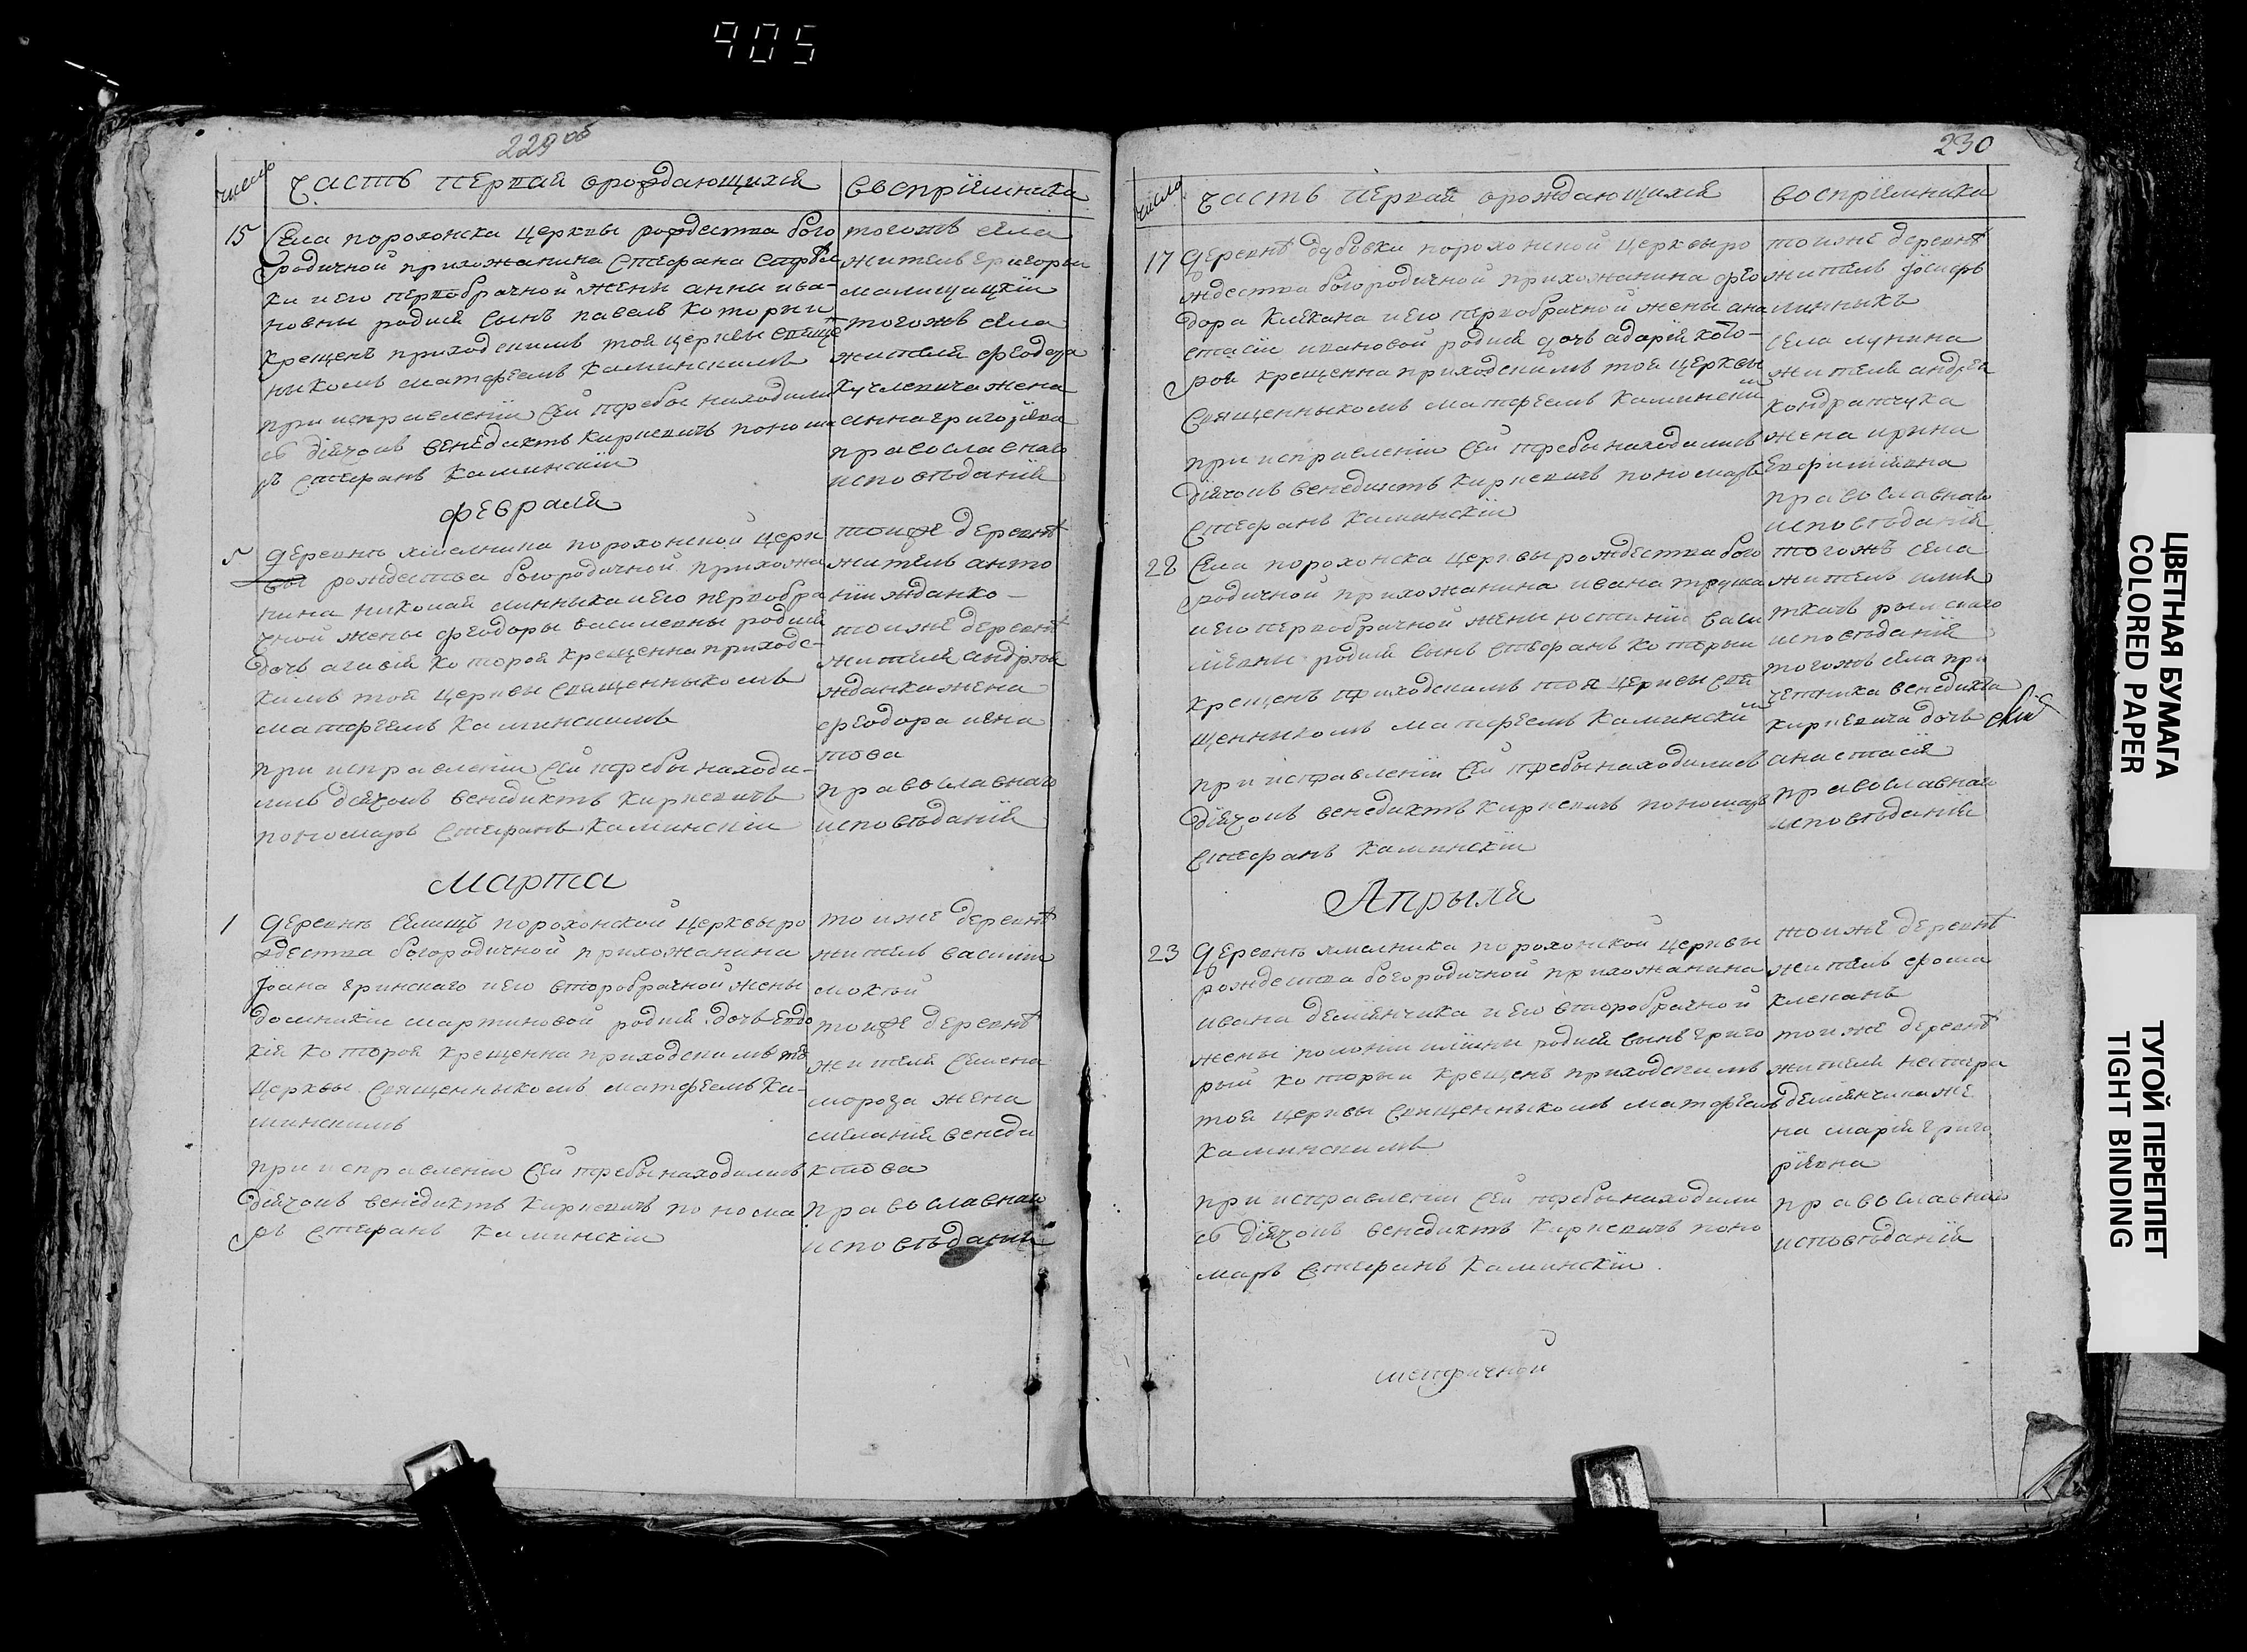 905
229 об
число
Часть первая о рождающихся
восприемники
15
Села порохонска церквы рождества бого
родичной прихожанина Стефана
ки и его первобрачной жены анны ива-
новны родися сынъ павелъ который
крещенъ приходскимъ тоя церквы свяще
ныкомъ матфеемъ каминскимъ
при исправленіи сей требы находили
сь діячокъ венедиктъ кирневичъ понома
ръ стефанъ каминскій
тогожъ села
житель григорій
тогожъ села
жителя феодора
жена
анна григоріева
православнаго
исповѣданія
февраля
5
деревнѣ хмелника порохонской церк
вы рождества богородичной прихожа
нина николая линника и его первобра
чной жены феодоры василевны родися
дочь агафія которая крещенна приходс-
кимъ тоя церквы священныкомъ
матфеемъ каминскимъ
при исправленіи сей требы находи-
лись діячокъ венедиктъ кирневичъ
пономаръ стефанъ каминскій
тоижe деревнѣ
житель анто
ній жданко-
тоиже деревнѣ
жителя андрея
жданка жена
феодора игна
това
православнаго
исповѣданія
Марта
1
деревнѣ селищъ порохонской церквы ро
ждества богородичной прихожанина
Іоана гринскаго и его второбрачной жены
домникіи мартиновой родися дочь евдо
кія которая крещенна приходскимъ тоя
церквы священныкомъ матфеемъ ка-
минскимъ
при исправленіи сей требы находились
діячокъ венедиктъ кирневичъ понома
ръ стефанъ каминскій
тоиже деревнѣ
житель василій
мокгый
тоиже деревнѣ
жителя семена
мороза жена
меланія венеди
ктова
православнаго
исповѣданія
230
число
часть первая о рождающихся
восприемники
17
деревнѣ дубовки порохонской церквы ро
ждества богородичной прихожанина фео
дора клекана и его первобрачной жены ана
стасіи ивановой родися дочь адарія кото-
рая крещенна приходскимъ тоя церквы
священныкомъ матфеемъ каминскимъ
при исправленіи сей требы находились
діячокъ венедиктъ кирневичъ пономаръ
стефанъ каминскій
тоиже деревнѣ
житель іосифъ
линныкъ
села лунина
жителя андрея
кондратчука
жена ирина
Евфиміевна
православнаго
исповѣданія
28
Села порохонска церквы рождества бого
родичной прихожанина ивана труша
и его первобрачной жены юстиніи васи
лівны родися сынъ стефанъ который
крещенъ приходскимъ тоя церквы свя
щенныкомъ матфеемъ каминскимъ
при исправленіи сей требы находились
діячокъ венедиктъ кирневичъ пономаръ
стефанъ каминскій
тогожъ села
житель илья
ткачъ рымскаго
исповѣданія
тогожъ села при
четника венедикта
кирневича дочь
анастасія
православнаго
исповѣданія
Апрыля
23
деревнѣ хмелника порохонской церквы
рождества богородичной прихожанина
ивана демянчика и его второбрачной
жены полоніи илины родися сынъ григо
рый который крещенъ приходскимъ
тоя церквы священныкомъ матфеемъ
каминскимъ
при исправленіи сей требы находили
сь діячокъ венедиктъ кирневичъ поно
маръ стефанъ каминскій.
тоиже деревнѣ
житель фома
клеканъ
тоиже деревнѣ
жителя нестера
демянчика же
на марія григо
ріевна
православнаго
исповѣданія
метричной
ЦВЕТНАЯ БУМАГА
COLORED PAPER
ТУГОЙ ПЕРЕПЛЕТ
TIGHT BINDING